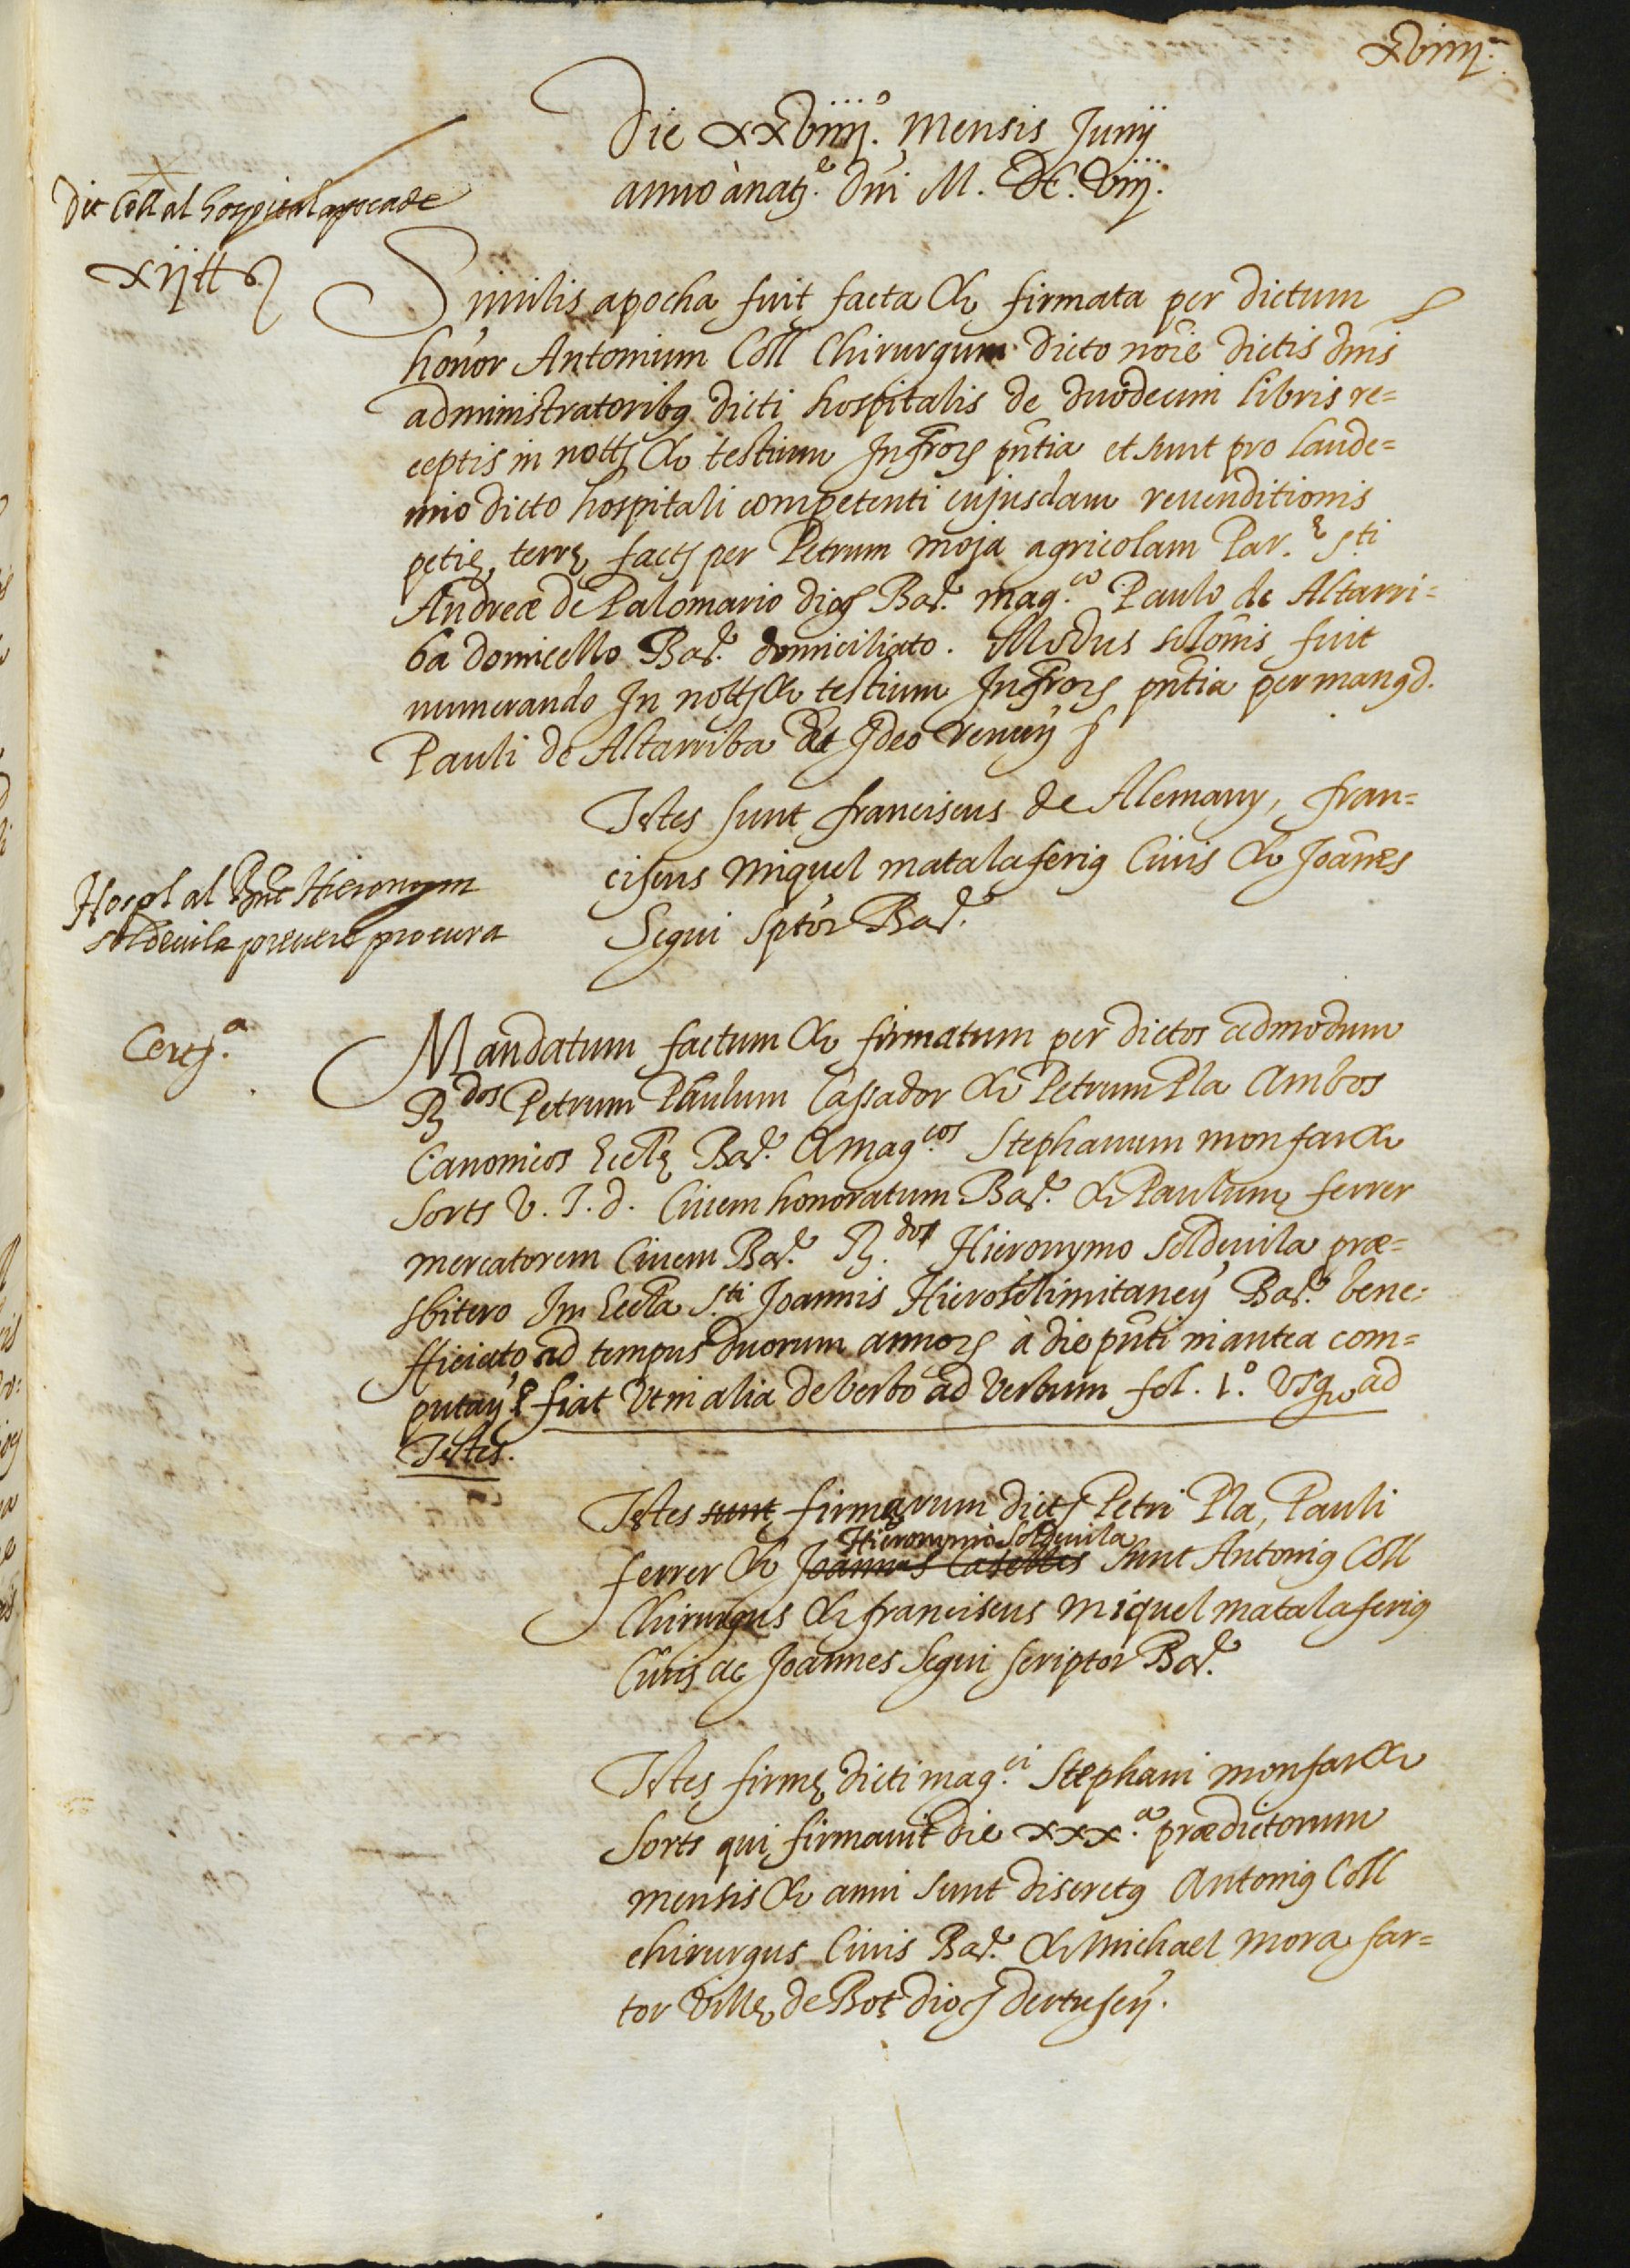 xviiij.
Die xxviiij.º Mensis Junij
anno à natᵉ. Dñi M. DC. Viiij.
Dit Coll al hospital apoca de
xij ₶
Similis apocha fuit facta & firmata per dictum
honor Antonium Coll Chirurgum dicto nõie dictis dñis
administratoribꝰ dicti hospitalis de duodecim libris re=
ceptis in nottꝭ & testium Infroꝝ pñtia et sunt pro laude=
mio dicto hospitali competenti cujusdam revenditionis
petię terrę factꝭ per Petrum moja agricolam Par.ᵉ Sti
Andreæ de Palomario diocꝭ Bar.ᵉ mag.ᶜᵒ Paulo de Altarri=
ba domicello Bar.ᵉ domiciliato. Modus solõnis fuit
numerando In nottꝭ & testium Infroꝝ pñtia per manꝰ d.
Pauli de Altarriba Et Ideo renuñ
Testes sunt franciscus de Alemany, fran=
ciscus Miquel matalaferiꝰ Civis & Joãnes
Segui Sptor Bar.ᵉ
Hospl al Rnt Hieronym
Soldevila prevere procura
Certꝭ.ᵃ
Mandatum factum & firmatum per dictos admodum
R.dos Petrum Paulum Cassador & Petrum Pla Ambos
Canonicos Eccłę Bar.ᵉ & mag.cos Stephanum monfar &
Sorts V. J. d. Civem honoratum Bar.ᵉ & Paulum ferrer
mercatorem Civem Bar.ᵉ R.do Hieronymo Soldevila præ=
sbitero In Eccła S.ti Joannis Hierosolimitaneÿ Bar.ᵉ bene=
fficiato ad tempus duorum annoꝝ à die pñti in antea com=
putañ. & fiat Ut in alia de verbo ad verbum fol. 1.º Usqꝫ ad
Testes.
Testes sunt firmarum dictꝭ Petri Pla, Pauli
Hieronymi Soldevila
ferrer & Joannes Casellas Sunt Antoniꝰ Coll
Chirurgus & franciscus Miquel matalaferiꝰ
Civis ac Joannes Segui scriptor Bar.ᵉ
Testes firmę dicti mag.ci Stephani monfar &
Sorts qui firmavit die xxx.ᵃ prædictorum
mensis & anni Sunt discretꝰ Antoniꝰ Coll
chirurgus Civis Bar.ᵉ & Michael Mora sar=
tor Villę de Bot diocꝭ dertuseñ.